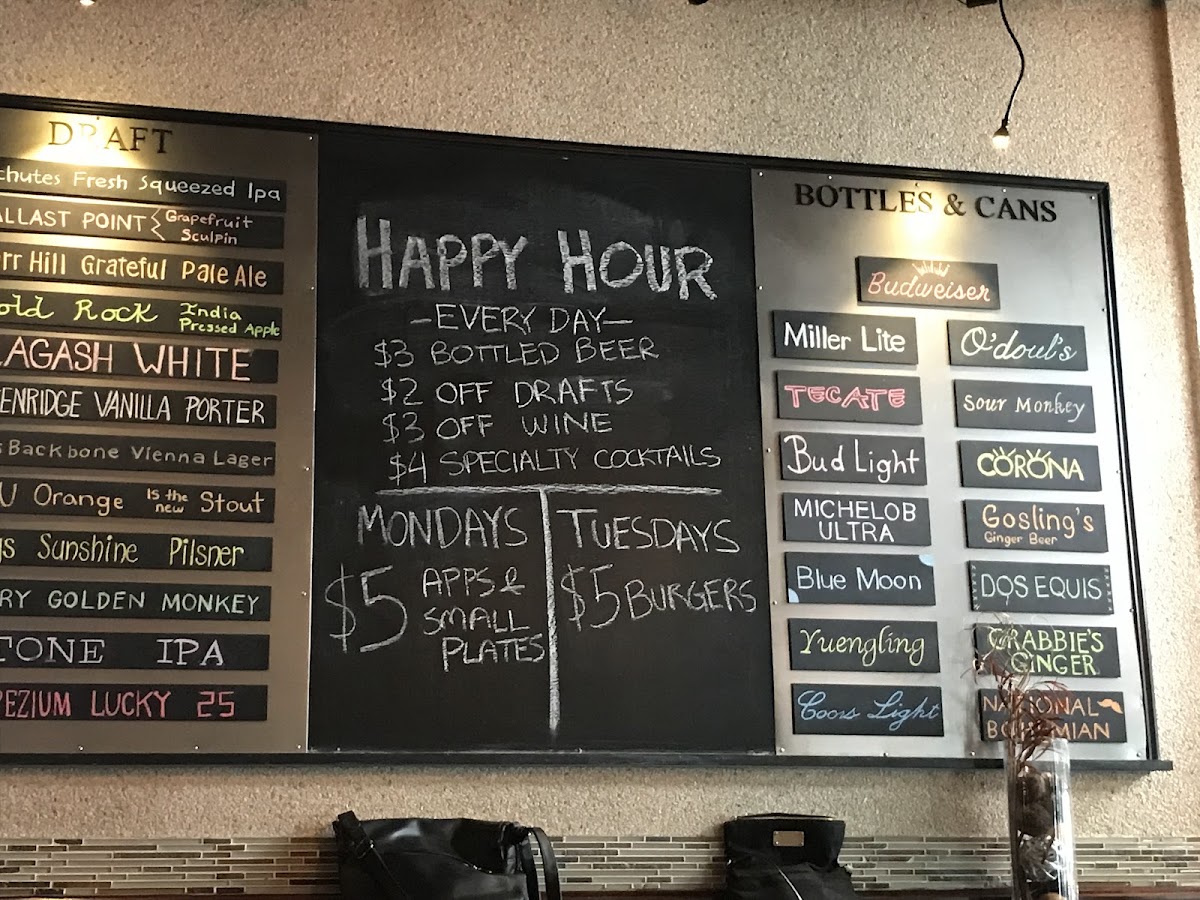 DRAFT
chutes Fresh Squeezed Ipa
ALLAST POINT { Grapefruit
Sculpin
rr Hill Grateful Pale Ale
old Rock India
Pressed Apple
LAGASH WHITE
ENRIDGE VANILLA PORTER
s Backbone Vienna Lager
U Orange Is the
new Stout
gs Sunshine Pilsner
RY GOLDEN MONKEY
TONE IPA
PEZIUM LUCKY 25
HAPPY HOUR
—EVERY DAY—
$3 BOTTLED BEER
$2 OFF DRAFTS
$3 OFF WINE
$4 SPECIALTY COCKTAILS
MONDAYS
$5 APPS &
SMALL
PLATES
TUESDAYS
$5 BURGERS
BOTTLES & CANS
Budweiser
Miller Lite
TECATE
Bud Light
MICHELOB
ULTRA
Blue Moon
Yuengling
Coors Light
O'doul's
Sour Monkey
CORONA
Gosling's
Ginger Beer
DOS EQUIS
CRABBIE'S
GINGER
NATIONAL
BOHEMIAN